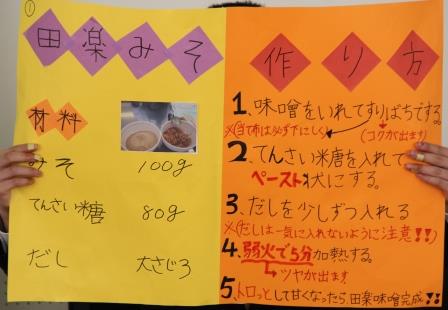 ①
田楽みそ
材料
みそ 100g
てんさい糖 80g
だし 大さじ3
作り方
1、味噌をいれてすりばちでする。
※(当て布は必ず下にしく) (コクが出ます)
2、てんさい糖を入れて
ペースト状にする。
3、だしを少しずつ入れる
※(だしは一気に入れないように注意!!)
4、弱火で5分加熱する。
↳ツヤが出ます
5、トロッとして甘くなったら、田楽味噌完成!!